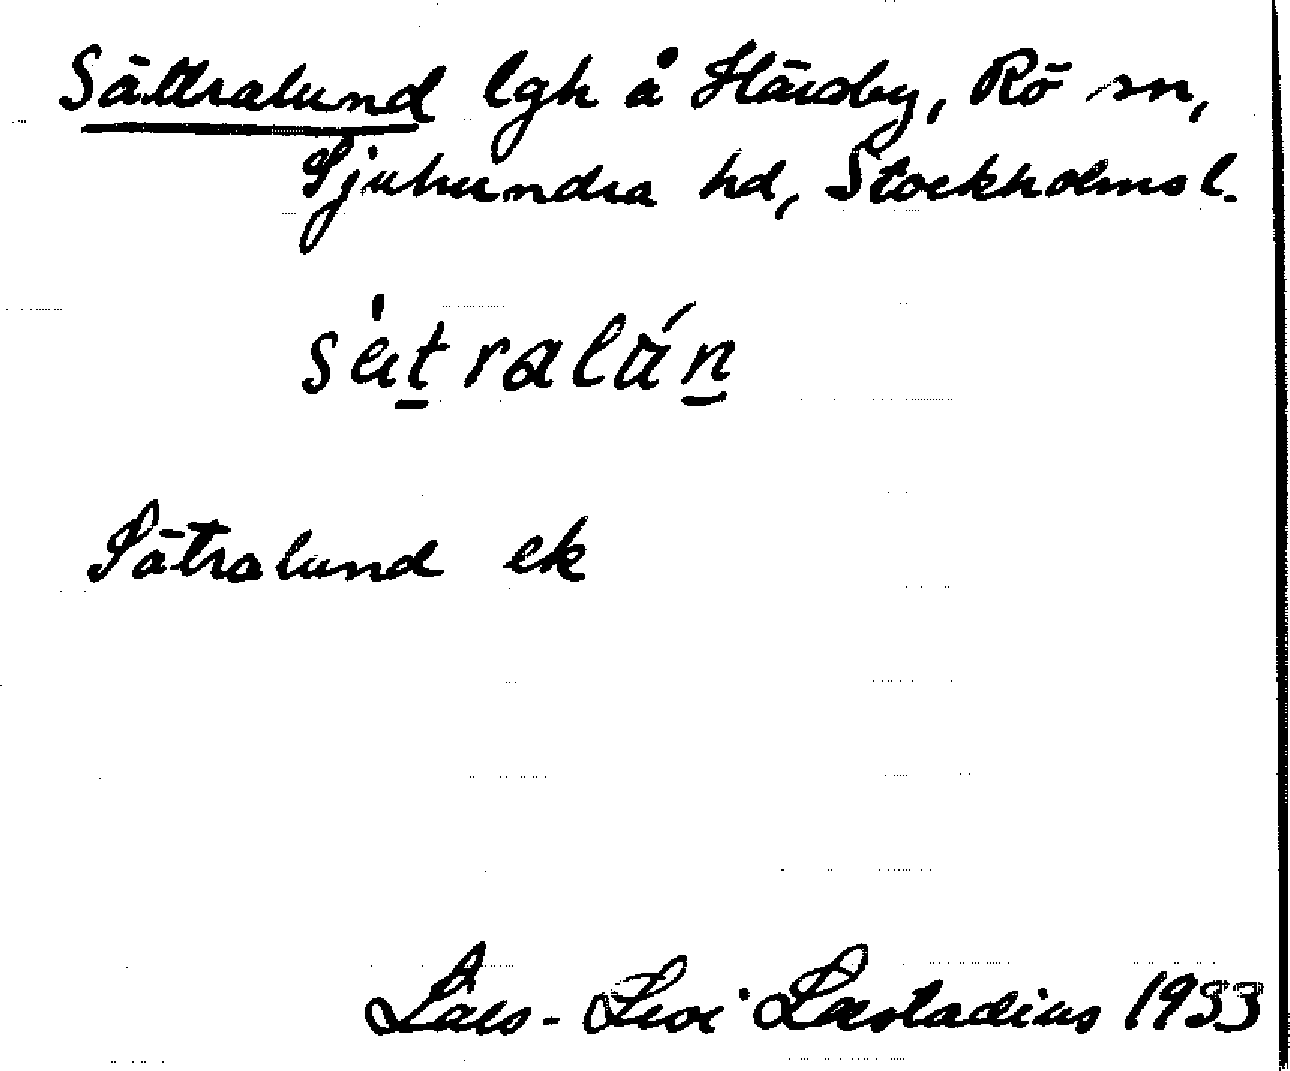 Sättralund lgh å Härsby, Rö sn,
Sjuhundra hd, Stockholms l.
sät̲ralán̲
Sätralund ek
Lars-Levi Læstadius 1933